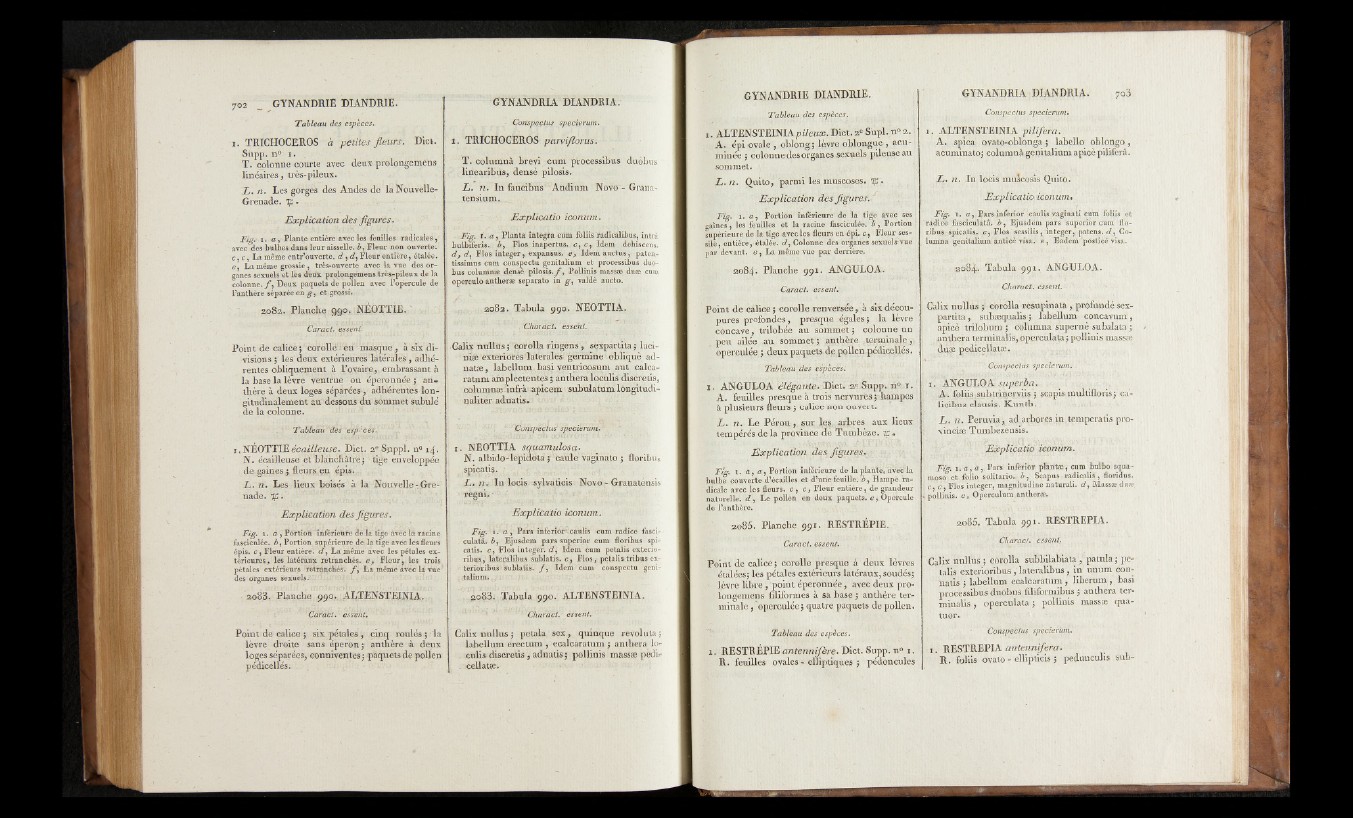 702 GYNANDRIE DIANDRIE.
Tableau des espèces.
1. TRICHOCEROS à petites fleurs. Dict.
Supp. n° 1.
T. colonne courte avec deux prolongemens
linéaires, très-pileux.
L. n. Les gorges des Andes de la Nouvelle-
Grenade. ♃.
Explication des figures.
Fig. 1. a, Plante entière avec les feuilles radicales,
avec des bulbes dans leur aisselle. b, Fleur non ouverte.
c, c, La même entr'ouverte. d, d, Fleur entière, étalée.
e, La même grossie, très-ouverte avec la vue des or-
ganes sexuels et les deux prolongemens très-pileux de la
colonne. f, Deux paquets de pollen avec l'opercule de
l'anthère séparée en g, et grossi.
2082. Planche 990. NÉOTTIE.
Caract. essent.
Point de calice; corolle en masque, à six di-
visions; les deux extérieures latérales, adhé-
rentes obliquement à l'ovaire, embrassant à
la base la lèvre ventrue ou éperonnée; an-
thère à deux loges séparées, adhérentes lon-
gitudinalement au dessous du sommet subulé
de la colonne.
Tableau des espèces.
1. NÉOTTIE écailleuse. Dict. 2e Suppl. n° 14.
N. écailleuse et blanchâtre; tige enveloppée
de gaines; fleurs en épis.
L. n. Les lieux boisés à la Nouvelle-Gre-
nade. ♃.
Explication des figures.
Fig. 1. a, Portion inférieure de la tige avec la racine
fasciculée. b, Portion supérieure de la tige avec les fleurs
épis. c, Fleur entière. d, La même avec les pétales ex-
térieures, les latéraux retranchés. e, Fleur, les trois
pétales extérieurs retranchés. f, La même avec la vue
des organes sexuels.
2083. Planche 990. ALTENSTEINIA.
Caract. essent.
Point de calice; six pétales, cinq roulés; la
lèvre droite sans éperon; anthère à deux
loges séparées, conniventes; paquets de pollen
pédicellés.
GYNANDRIA DIANDRIA.
Conspectus specierum.
1. TRICHOCEROS parviflorus.
T. columnâ brevi cum processibus duobus
linearibus, densè pilosis.
L. n. In faucibus Andium Novo-Grana-
tensium.
Explicatio iconum.
Fig. 1. a, Planta integra cum foliis radicalibus, intrà
bulbiferis. b, Flos inapertus. c, c, Idem dehiscens.
d, d, Flos integer, expansus. e, Idem auctus, paten-
tissimus cum conspectu genitalium et processibus duo-
bus columnæ densè pilosis. f, Pollinis massæ duæ cum
operculo antheræ separato in g, valdè aucto.
2082. Tabula 990. NEOTTIA.
Charact. essent.
Calix nullus; corolla ringens, sexpartita; laci-
niæ exteriores laterales germine obliquè ad-
natæ, labellum basi ventricosum aut calca-
ratum amplectentes; anthera loculis discretis,
columnæ infrà apicem subulatum longitudi-
naliter adnatis.
Conspectus specierum.
1. NEOTTIA squamulosa.
N. albido-lepidota; caule vaginato; floribus
spicatis.
L. n. In locis sylvaticis Novo-Granatensis
regni.
Explicatio iconum.
Fig. 1. a, Pars inferior caulis cum radice fasci-
culatâ. b, Ejusdem pars superior cum floribus spi-
catis. c, Flos integer. d, Idem cum petalis exterio-
ribus, lateralibus sublatis. e, Flos, petalis tribus ex-
terioribus sublatis. f, Idem cum conspectu geni-
talium.
2083. Tabula 990. ALTENSTEINIA.
Charact. essent.
Calix nullus; petala sex, quinque revoluta;
labellum erectum, ecalcaratum; anthera lo-
culis discretis, adnatis; pollinis massæ pedi-
cellatæ.
GYNANDRIE DIANDRIE.
Tableau des espèces.
1. ALTENSTEINIA pileux. Dict. 2e Supl. n° 2.
A. épi ovale, oblong; lèvre oblongue, acu-
minée; colonne des organes sexuels pileuse au
sommet.
L. n. Quito, parmi les muscoses. ♃.
Explication des figures.
Fig. 1. a, Portion inférieure de la tige avec ses
gaines, les feuilles et la racine fasciculée. b, Portion
supérieure de la tige avec les fleurs en épi. c, Fleur ses-
sile, entière, étalée. d, Colonne des organes sexuels vue
par devant. e, La même vue par derrière.
2084. Planche 991. ANGULOA.
Caract. essent.
Point de calice; corolle renversée, à six décou-
pures profondes, presque égales; la lèvre
concave, trilobée au sommet; colonne un
peu ailée au sommet; anthère terminale,
operculée; deux paquets de pollen pédicellés.
Tableau des espèces.
1. ANGULOA élégante. Dict. 2e Supp. n° 1.
A. feuilles presque à trois nervures; hampes
à plusieurs fleurs; calice non ouvert.
L. n. Le Pérou, sur les arbres aux lieux
tempérés de la province de Tumbèze. ♃.
Explication des figures.
Fig. 1. a, a, Portion inférieure de la plante, avec la
bulbe couverte d'écailles et d'une feuille. b, Hampe ra-
dicale avec les fleurs. c, c, Fleur entière, de grandeur
naturelle. d, Le pollen en deux paquets. e, Opercule
de l'anthère.
2085. Planche 991. RESTRÉPIE.
Caract. essent.
Point de calice; corolle presque à deux lèvres
étalées; les pétales extérieurs latéraux, soudés;
lèvre libre, point éperonnée, avec deux pro-
longemens filiformes à sa base; anthère ter-
minale, operculée; quatre paquets de pollen.
Tableau des espèces.
1. RESTRÉPIE antennifère. Dict. Supp. n° 1.
R. feuilles ovales-elliptiques; pédoncules
GYNANDRIA DIANDRIA. 703
Conspectus specierum.
1. ALTENSTEINIA pilifera.
A. spica ovato-oblonga; labello oblongo,
acuminato; columnâ genitalium apice piliferâ.
L. n. In locis muscosis Quito.
Explicatio iconum.
Fig. 1. a, Pars inferior caulis vaginati cum foliis et
radice fasciculatâ. b, Ejusdem pars superior cum flo-
ribus spicatis. c, Flos sessilis, integer, patens. d, Co-
lumna genitalium anticè visa. e, Eadem posticè visa.
2084. Tabula 991. ANGULOA.
Charact. essent.
Calix nullus; corolla resupinata, profundè sex-
partita, subæqualis; labellum concavum,
apice trilobum; columna supernè subalata;
anthera terminalis, operculata; pollinis massæ
duæ pedicellatæ.
Conspectus specierum.
1. ANGULOA superba.
A. foliis subtrinerviis; scapis multifloris; ca-
licibus clausis. Kunth.
L. n. Peruvia, ad arbores in temperatis pro-
vinciæ Tumbezensis.
Explicatio iconum.
Fig. 1. a, a, Pars inferior plantæ, cum bulbo squa-
moso et folio solitario. b, Scapus radicalis, floridus.
c, c, Flos integer, magnitudine naturali. d, Massæ duæ
pollinis. e, Operculum antheræ.
2085. Tabula 991. RESTREPIA.
Charact. essent.
Calix nullus; corolla subbilabiata, patula; pe-
talis exterioribus, lateralibus, in unum con-
natis; labellum ecalcaratum, liberum, basi
processibus duobus filiformibus; anthera ter-
minalis, operculata; pollinis massæ qua-
tuor.
Conspectus specierum.
1. RESTREPIA antennifera.
R. foliis ovato-ellipticis; pedunculis sub-